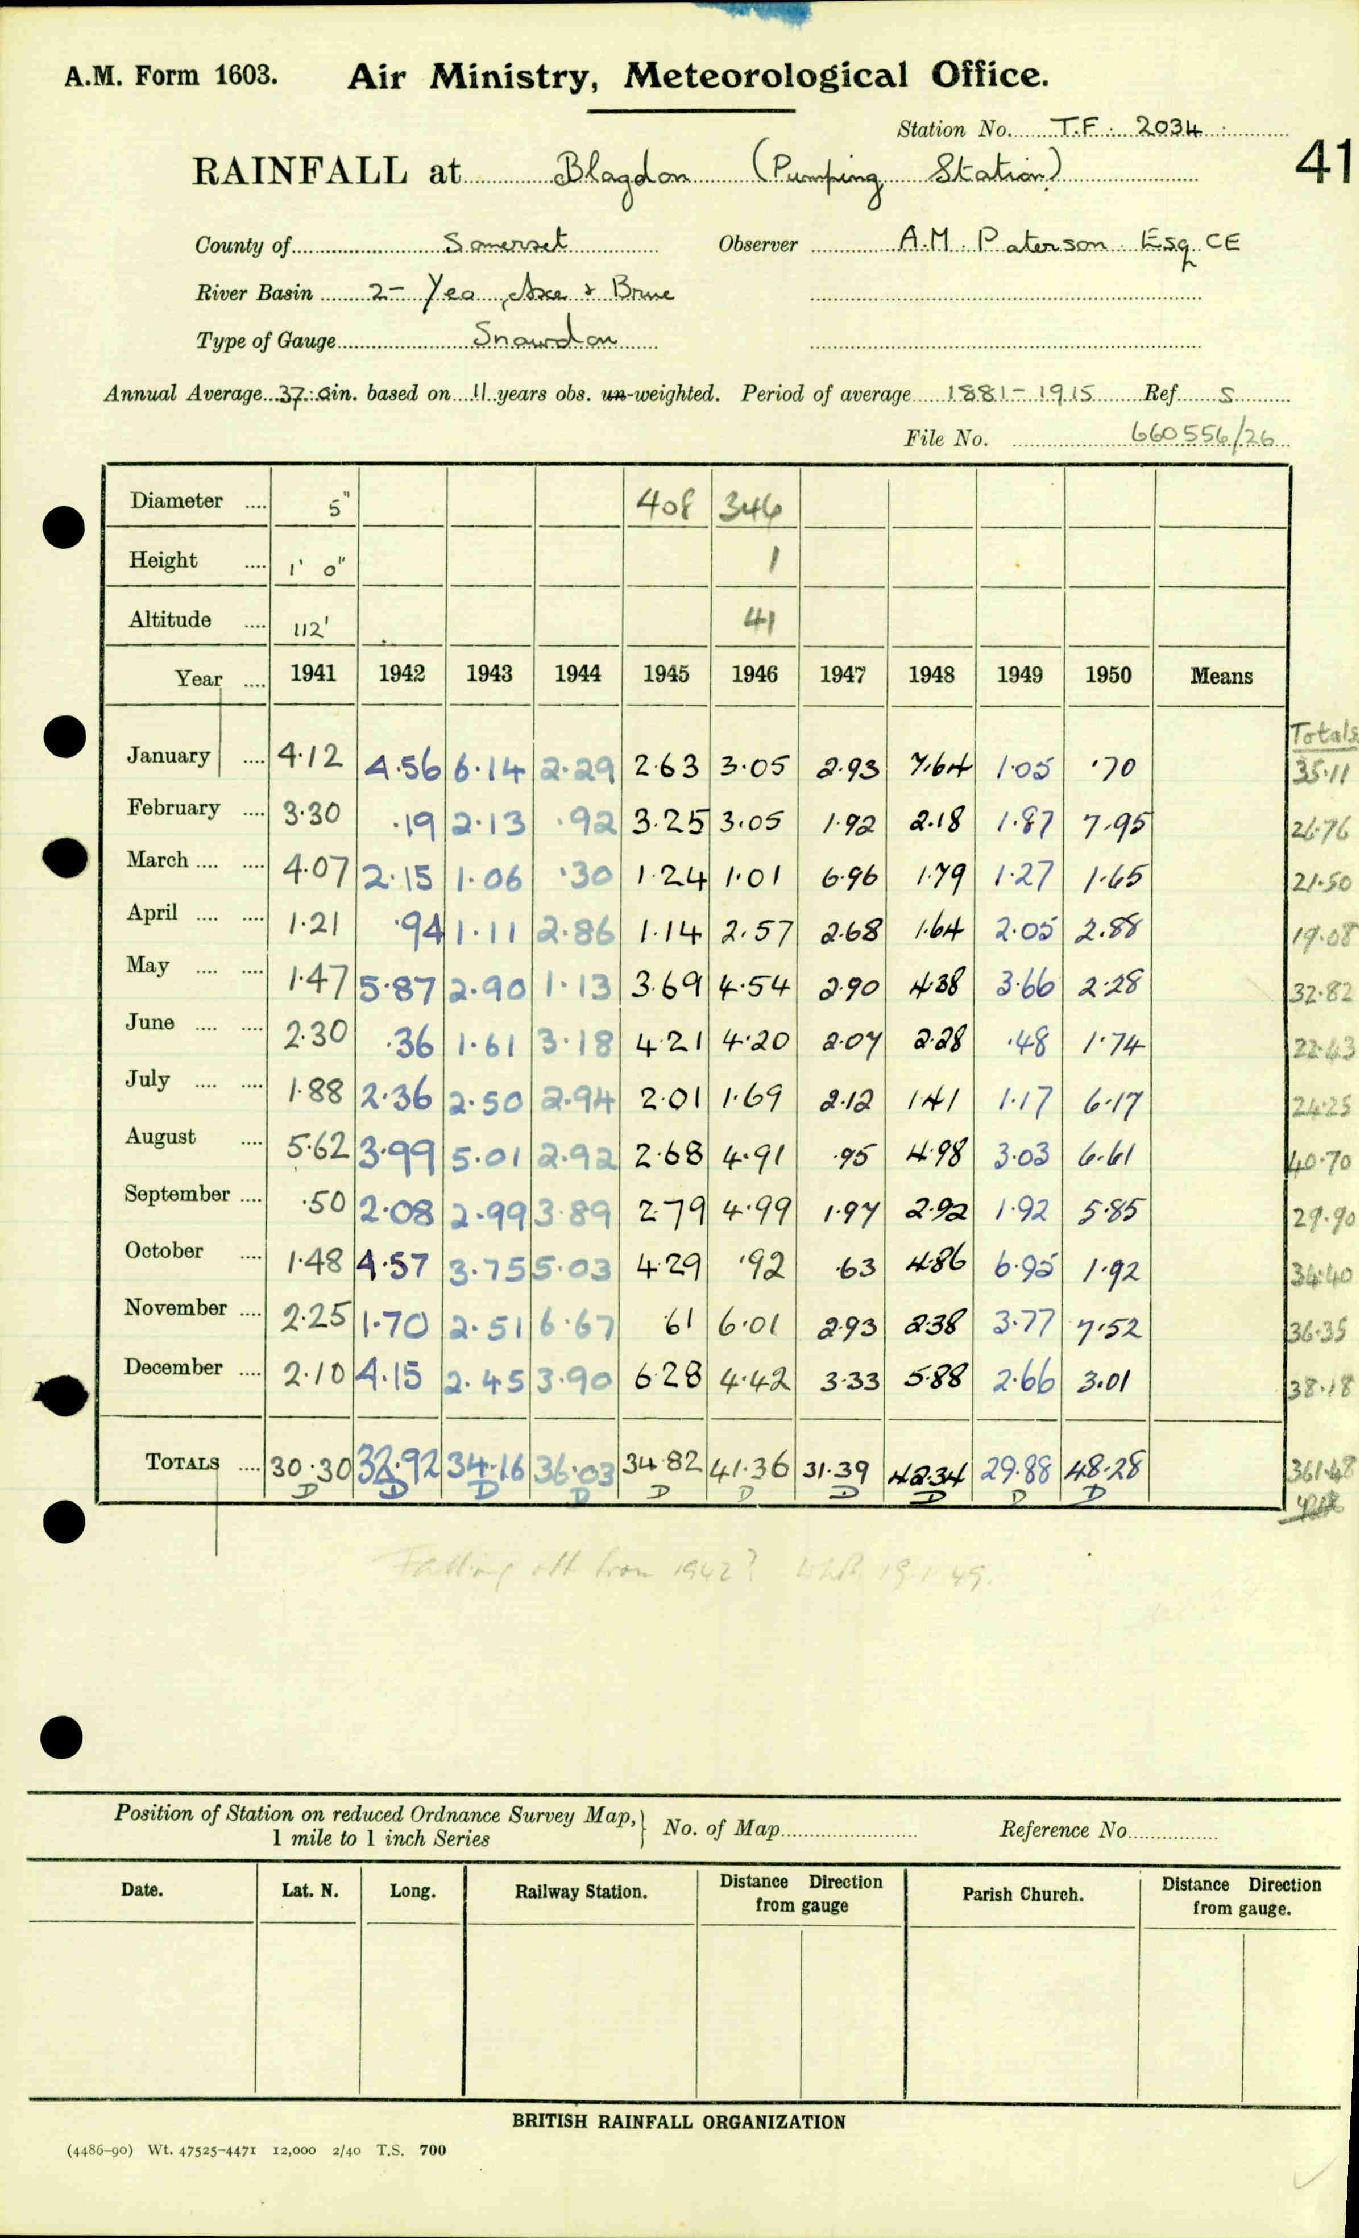 A.M. Form 1603. Air Ministry, Meteorological Office.
Station No. T.F. 2034
41
RAINFALL at Blagdon (Pumping Station)
County of Somerset Observer A.M. Paterson Esq CE
River Basin 2- Yeo, Axe & Brue
Type of Gauge Snowdon
Annual Average 37.0 in. based on 11 years obs. un-weighted. Period of average 1881-1915 Ref S
File No. 660556/26
Diameter .... 5" 408 346
Height .... 1' 0" 1
Altitude .... 112' 41
Year .... 1941 1942 1943 1944 1945 1946 1947 1948 1949 1950 Means
Totals
January .... 4.12 4.56 6.14 2.29 2.63 3.05 2.93 7.64 1.05 .70 35.11
February .... 3.30 .19 2.13 .92 3.25 3.05 1.92 2.18 1.87 7.95 26.76
March .... .... 4.07 2.15 1.06 .30 1.24 1.01 6.96 1.79 1.27 1.65 21.50
April .... .... 1.21 .94 1.11 2.86 1.14 2.57 2.68 1.64 2.05 2.88 19.08
May .... .... 1.47 5.87 2.90 1.13 3.69 4.54 2.90 4.38 3.66 2.28 32.82
June .... .... 2.30 .36 1.61 3.18 4.21 4.20 2.07 2.28 .48 1.74 22.43
July .... .... 1.88 2.36 2.50 2.94 2.01 1.69 2.12 1.41 1.17 6.17 24.25
August .... 5.62 3.99 5.01 2.92 2.68 4.91 .95 4.98 3.03 6.61 40.70
September .... .50 2.08 2.99 3.89 2.79 4.99 1.97 2.92 1.92 5.85 29.90
October .... 1.48 4.57 3.75 5.03 4.29 .92 .63 4.86 6.95 1.92 34.40
November .... 2.25 1.70 2.51 6.67 61 6.01 2.93 2.38 3.77 7.52 36.35
December .... 2.10 4.15 2.45 3.90 6.28 4.42 3.33 5.88 2.66 3.01 38.18
TOTALS .... 30.30 32.92 34.16 36.03 34.82 41.36 31.39 42.34 29.88 48.28 361.48
D D D D D D D D D D
Falling off from 1942? 19.1.49.
Position of Station on reduced Ordnance Survey Map, 1 mile to 1 inch Series } No. of Map Reference No
Date. Lat. N. Long. Railway Station. Distance Direction from gauge Parish Church. Distance Direction from gauge.
BRITISH RAINFALL ORGANIZATION
(4486-90) Wt. 47525-4471 12,000 2/40 T.S. 700